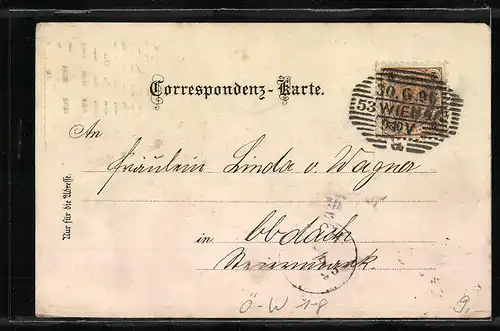 Correspondenz-Karte.
30.6.96
53 WIEN
An
Fräulein Linda v. Wagner
in Obdach
Steiermark
Nur für die Adresse.
Ö-W 1-8
9,